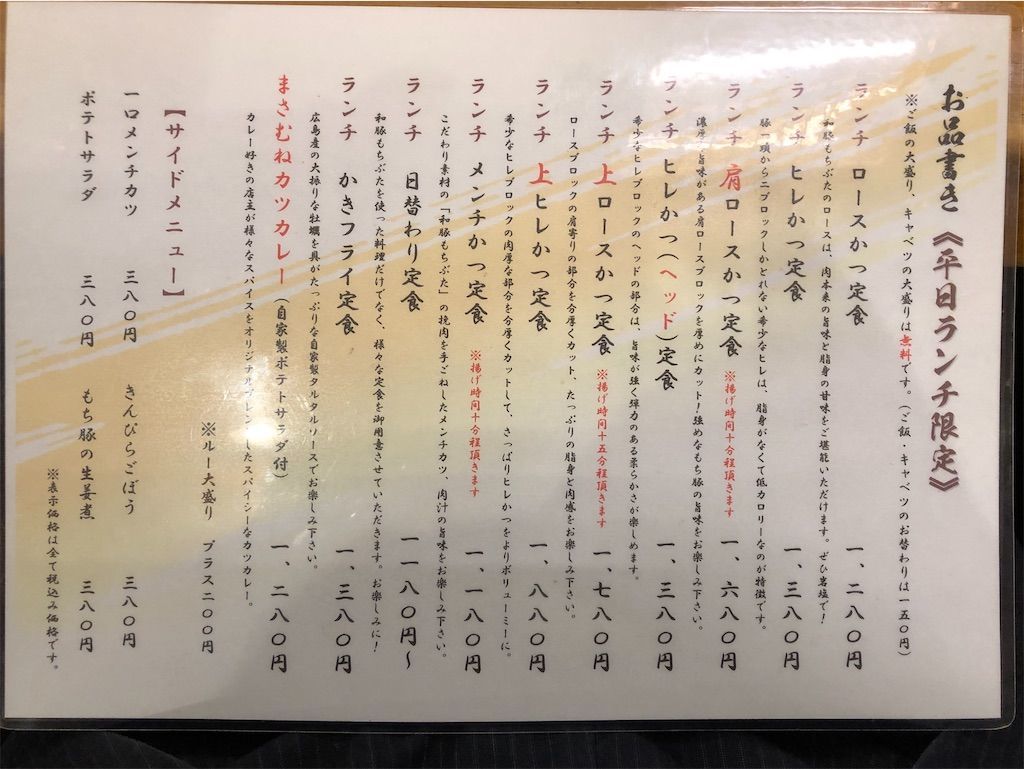 お品書き《平日ランチ限定》
※ご飯の大盛り、キャベツの大盛りは無料です。(ご飯・キャベツのお替わりは一五〇円)
ランチ ロースかつ定食 一、二八〇円
和豚もちぶたのロースは、肉本来の旨味と脂身の甘味をご堪能いただけます。ぜひ岩塩で!
ランチ ヒレかつ定食 一、三八〇円
豚一頭から二ブロックしかとれない希少なヒレは、脂身がなくて低カロリーなのが特徴です。
ランチ 肩ロースかつ定食 ※揚げ時間十分程頂きます 一、六八〇円
濃厚な旨味がある肩ロースブロックを厚めにカット!強めなもち豚の旨味をお楽しみ下さい。
ランチ ヒレかつ(ヘッド)定食 一、三八〇円
希少なヒレブロックのヘッドの部分は、旨味が強く弾力のある柔らかさが楽しめます。
ランチ 上ロースかつ定食 ※揚げ時間十五分程頂きます 一、七八〇円
ロースブロックの肩寄りの部分を分厚くカット、たっぷりの脂身と肉感をお楽しみ下さい。
ランチ 上ヒレかつ定食 一、八八〇円
希少なヒレブロックの肉厚な部分を分厚くカットして、さっぱりヒレかつをよりボリューミーに。
ランチ メンチかつ定食 ※揚げ時間十分程頂きます 一、一八〇円
こだわり素材の「和豚もちぶた」の挽肉を手ごねしたメンチカツ、肉汁の旨味をお楽しみ下さい。
ランチ 日替わり定食 一、一八〇円〜
和豚もちぶたを使った料理だけでなく、様々な定食を御用意させていただきます。お楽しみに!
ランチ かきフライ定食 一、三八〇円
広島産の大振りな牡蠣を具がたっぷりな自家製タルタルソースでお楽しみ下さい。
まさむねカツカレー(自家製ポテトサラダ付) 一、二八〇円
カレー好きの店主が様々なスパイスをオリジナルブレンドしたスパイシーなカツカレー。
※ルー大盛り プラス二〇〇円
【サイドメニュー】
一口メンチカツ 三八〇円 きんぴらごぼう 三八〇円
ポテトサラダ 三八〇円 もち豚の生姜煮 三八〇円
※表示価格は全て税込み価格です。